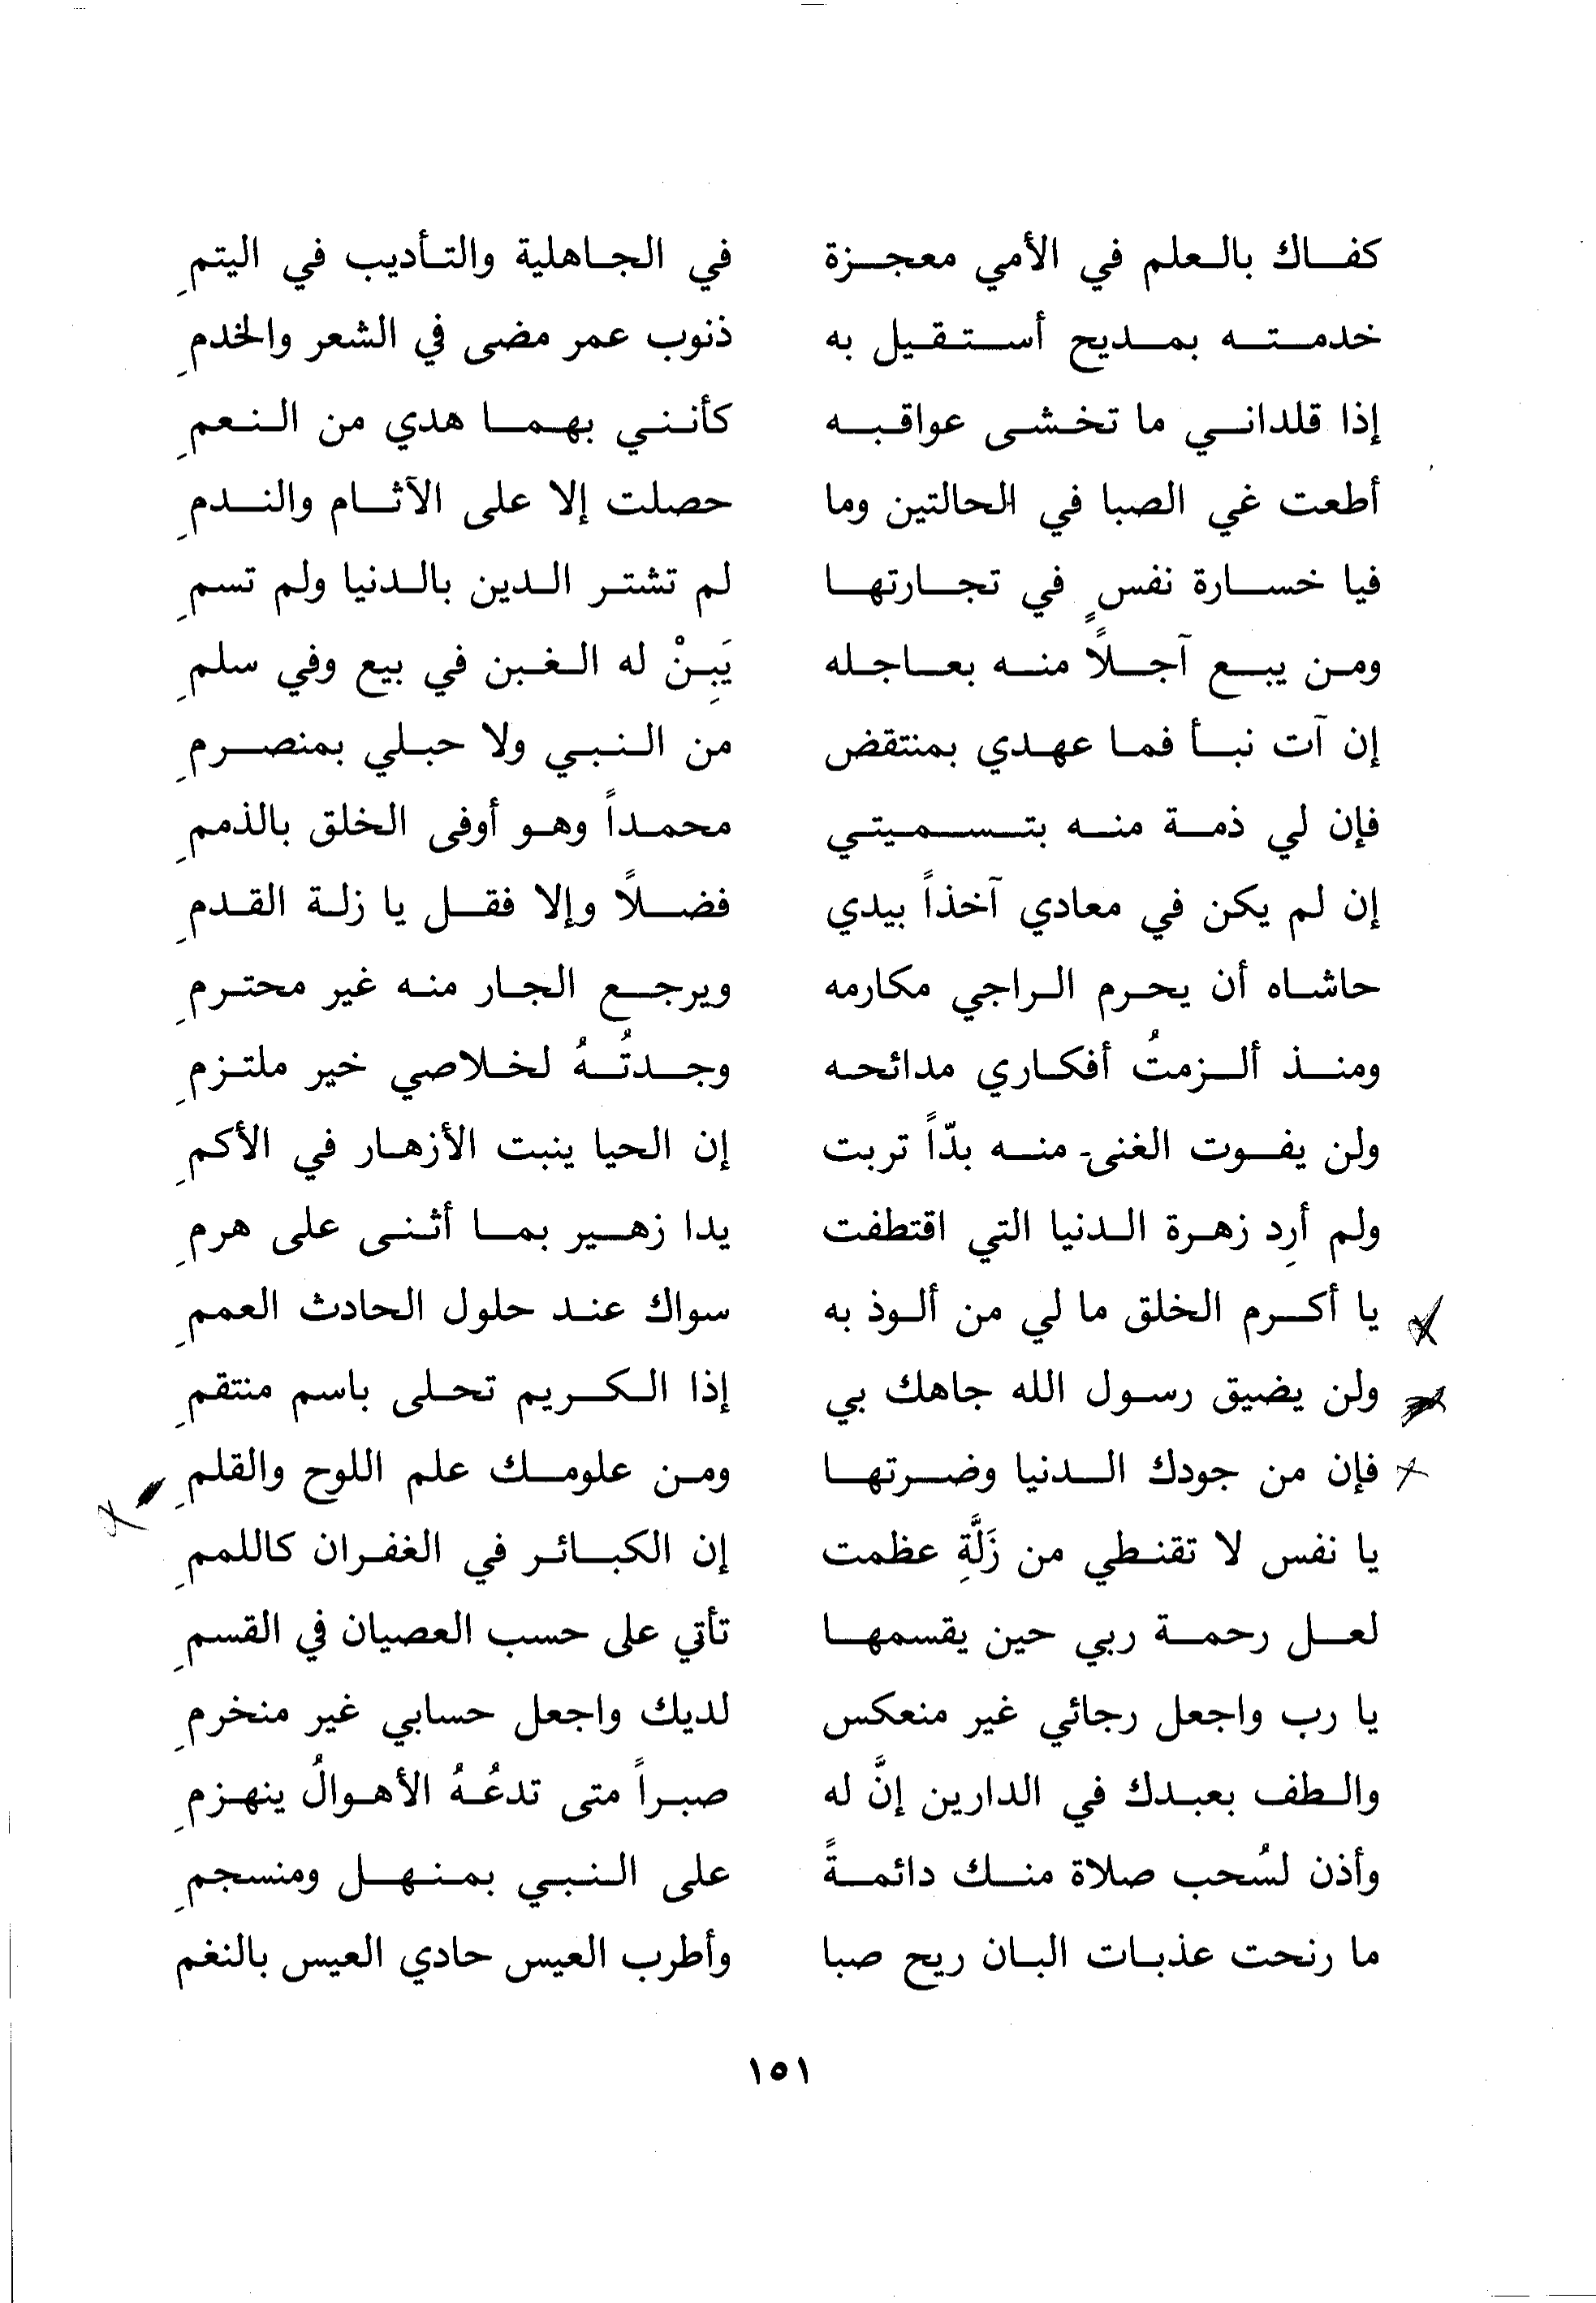 كفاك بالعلم في الأمي معجزة في الجاهلية والتأديب في اليتمِ
خدمته بمديح أستقيل به ذنوب عمر مضى في الشعر والخدمِ
إذا قلداني ما تخشى عواقبه كأنني بهما هدي من النعمِ
أطعت غي الصبا في الحالتين وما حصلت إلا على الآثام والندمِ
فيا خسارة نفسٍ في تجارتها لم تشتر الدين بالدنيا ولم تسمِ
ومن يبع آجلاً منه بعاجله يَبِنْ له الغبن في بيع وفي سلمِ
إن آت نبأ فما عهدي بمنتقض من النبي ولا حبلي بمنصرمِ
فإن لي ذمة منه بتسميتي محمداً وهو أوفى الخلق بالذممِ
إن لم يكن في معادي آخذاً بيدي فضلاً وإلا فقل يا زلة القدمِ
حاشاه أن يحرم الراجي مكارمه ويرجع الجار منه غير محترمِ
ومنذ ألزمتُ أفكاري مدائحه وجدتُهُ لخلاصي خير ملتزمِ
ولن يفوت الغنى منه بدّاً تربت إن الحيا ينبت الأزهار في الأكمِ
ولم أرِد زهرة الدنيا التي اقتطفت يدا زهير بما أثنى على هرمِ
يا أكرم الخلق ما لي من ألوذ به سواك عند حلول الحادث العممِ
ولن يضيق رسول الله جاهك بي إذا الكريم تحلى باسم منتقمِ
فإن من جودك الدنيا وضرتها ومن علومك علم اللوح والقلمِ
يا نفس لا تقنطي من زَلَّةِ عظمت إن الكبائر في الغفران كاللممِ
لعل رحمة ربي حين يقسمها تأتي على حسب العصيان في القسمِ
يا رب واجعل رجائي غير منعكس لديك واجعل حسابي غير منخرمِ
والطف بعبدك في الدارين إنَّ له صبراً متى تدعُهُ الأهوالُ ينهزمِ
وأذن لسُحب صلاة منك دائمةً على النبي بمنهل ومنسجمِ
ما رنحت عذبات البان ريح صبا وأطرب العيس حادي العيس بالنغم
١٥١